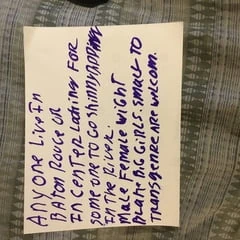 ANYONE LIVE IN
BATON ROUGE OR
IN CENTER LOOKING FOR
SOMEONE TO GO SKINNYDIPPING
IN THE RIVER.
MALE FEMALE WIGHT
BLACK BIG GIRLS. SMALL TO
TRANSGENDER ARE WELCOM.